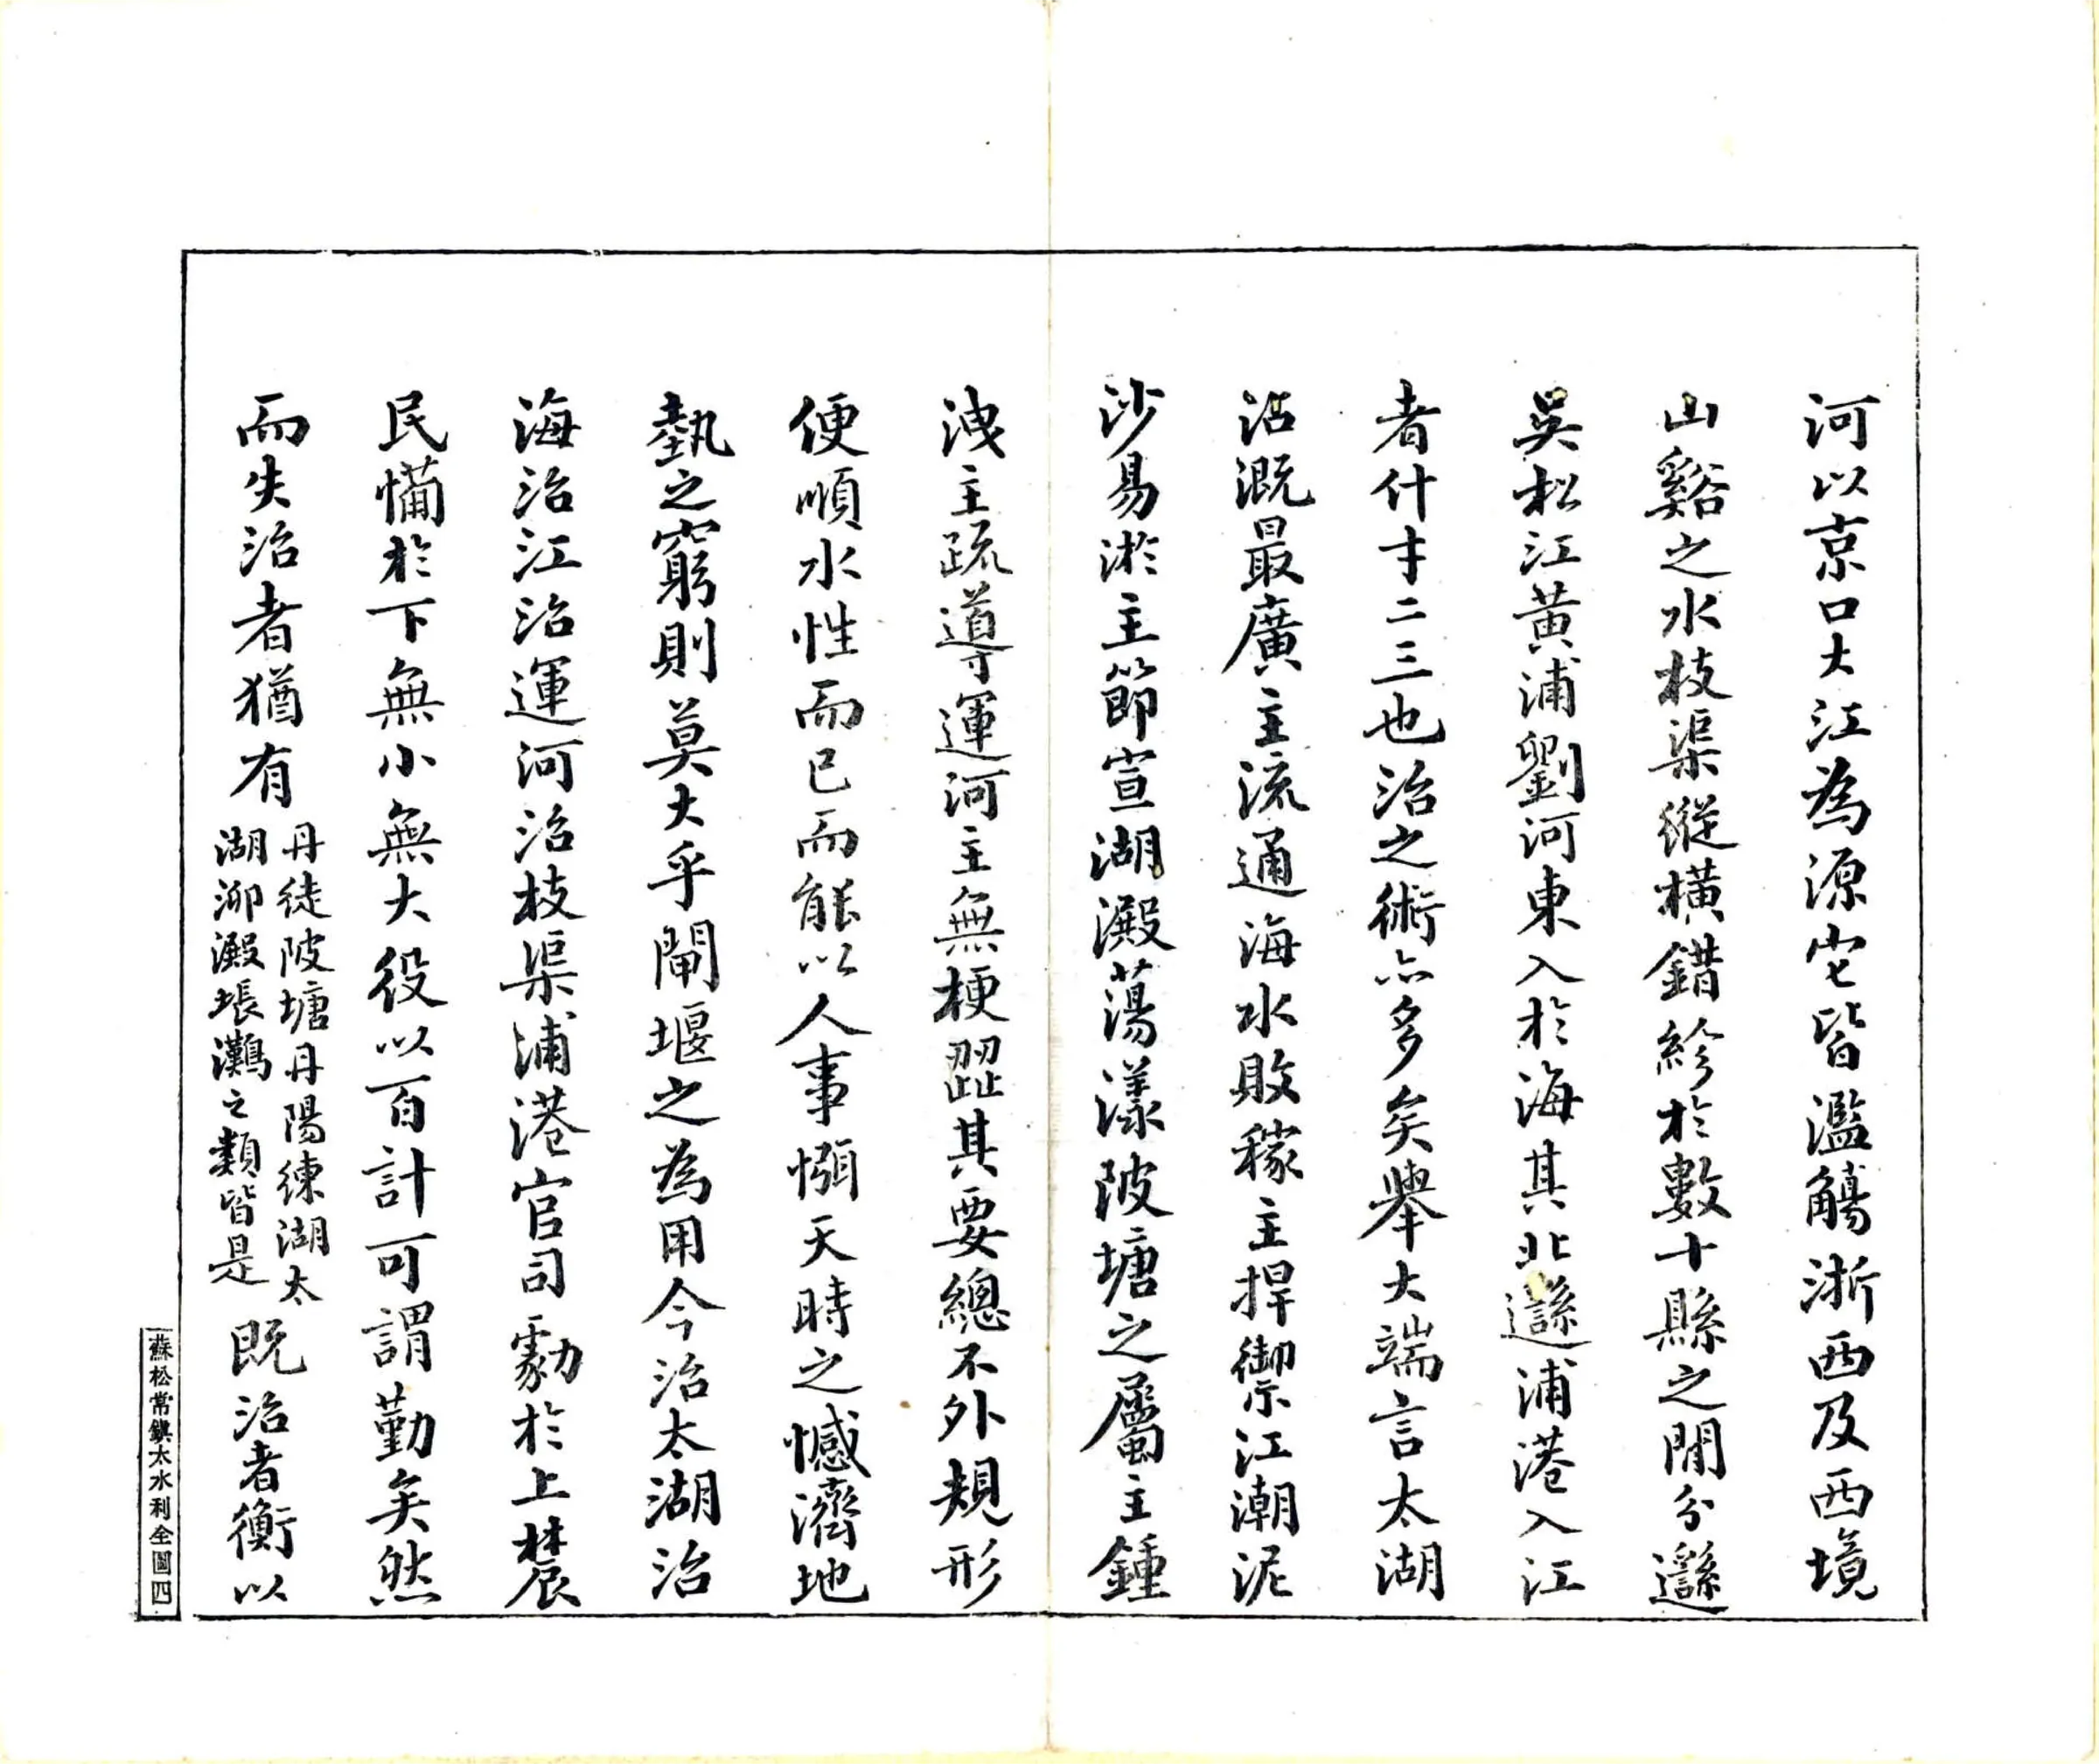 河以京口大江為源它皆濫觴浙西及西境
山谿之水枝渠縱橫錯紾於數十縣之閒分繇
吳松江黃浦劉河東入於海其北繇浦港入江
者什才二三也治之術亦多矣舉大端言太湖
沾溉最廣主流通海水敗稼主捍禦江潮泥
沙易淤主節宣湖澱蕩漾陂塘之屬主鍾
洩主疏導運河主無梗澀其要總不外規形
便順水性而已而能以人事弭天時之憾濟地
埶之窮則莫大乎閘堰之為用今治太湖治
海治江治運河治枝渠浦港官司勷於上農
民憊於下無小無大役以百計可謂勤矣然
而失治者猶有
丹徒陂塘丹陽練湖太
湖泖澱漲灘之類皆是
既治者衡以
蘇松常鎮太水利全圖四